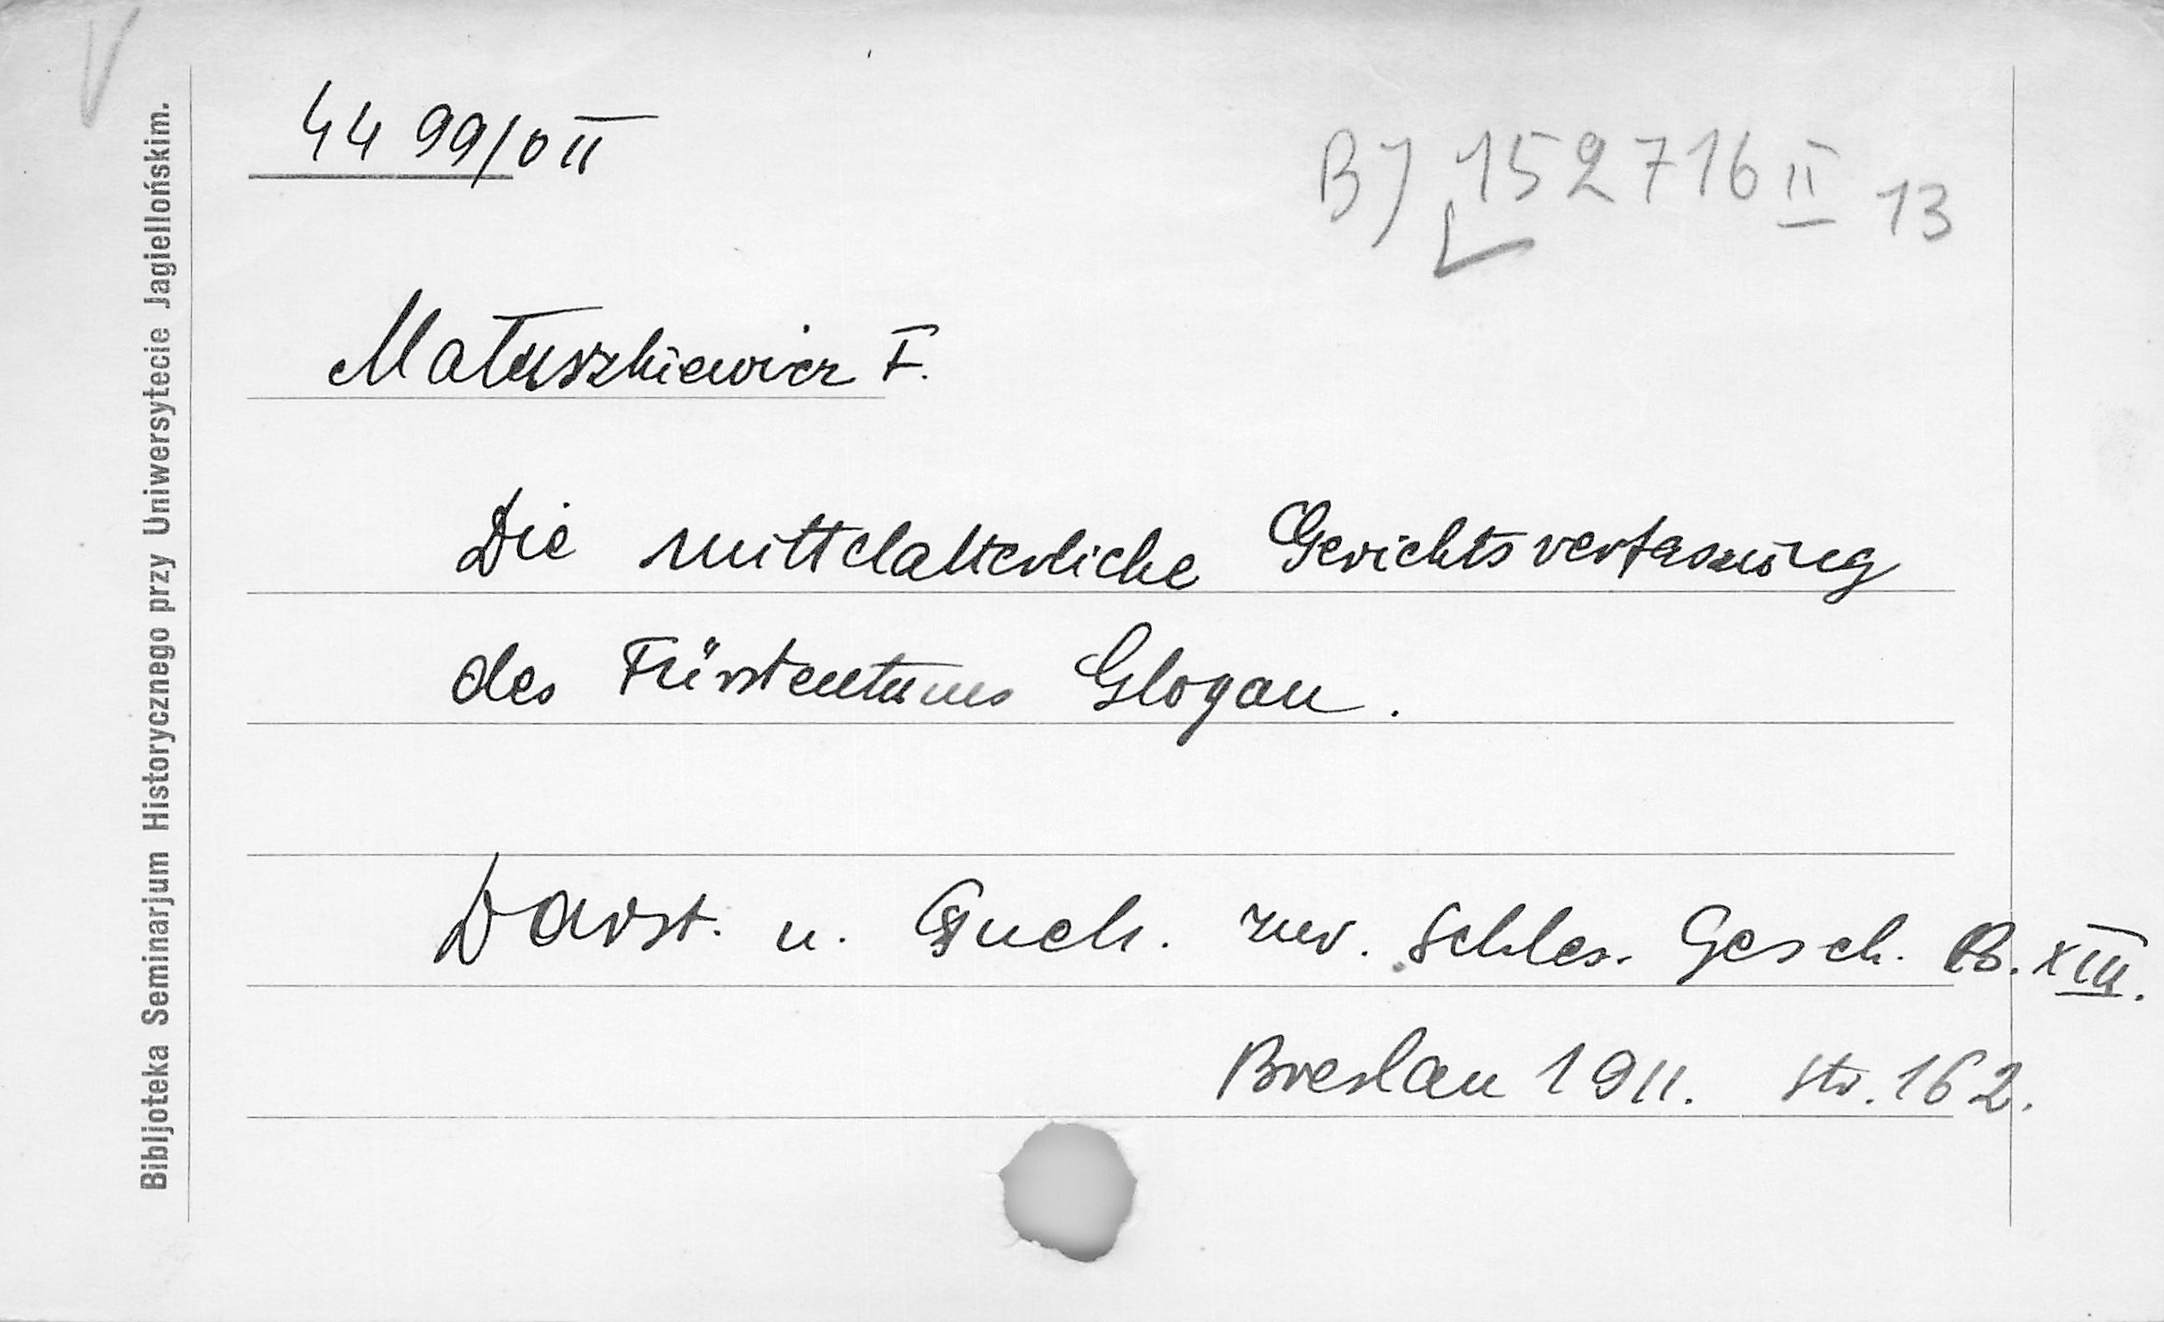 4499/0 II
BJ 152716 II 13
Matuszkiewicz F.
Die mittelalterliche Gerichtsverfassung
des Fürstentums Glogau.
Darst. u. Quell. zur. Schles. Gesch. B. XIII.
Breslau 1911. str. 162.
Bibljoteka Seminarjum Historycznego przy Uniwersytecie Jagiellońskim.